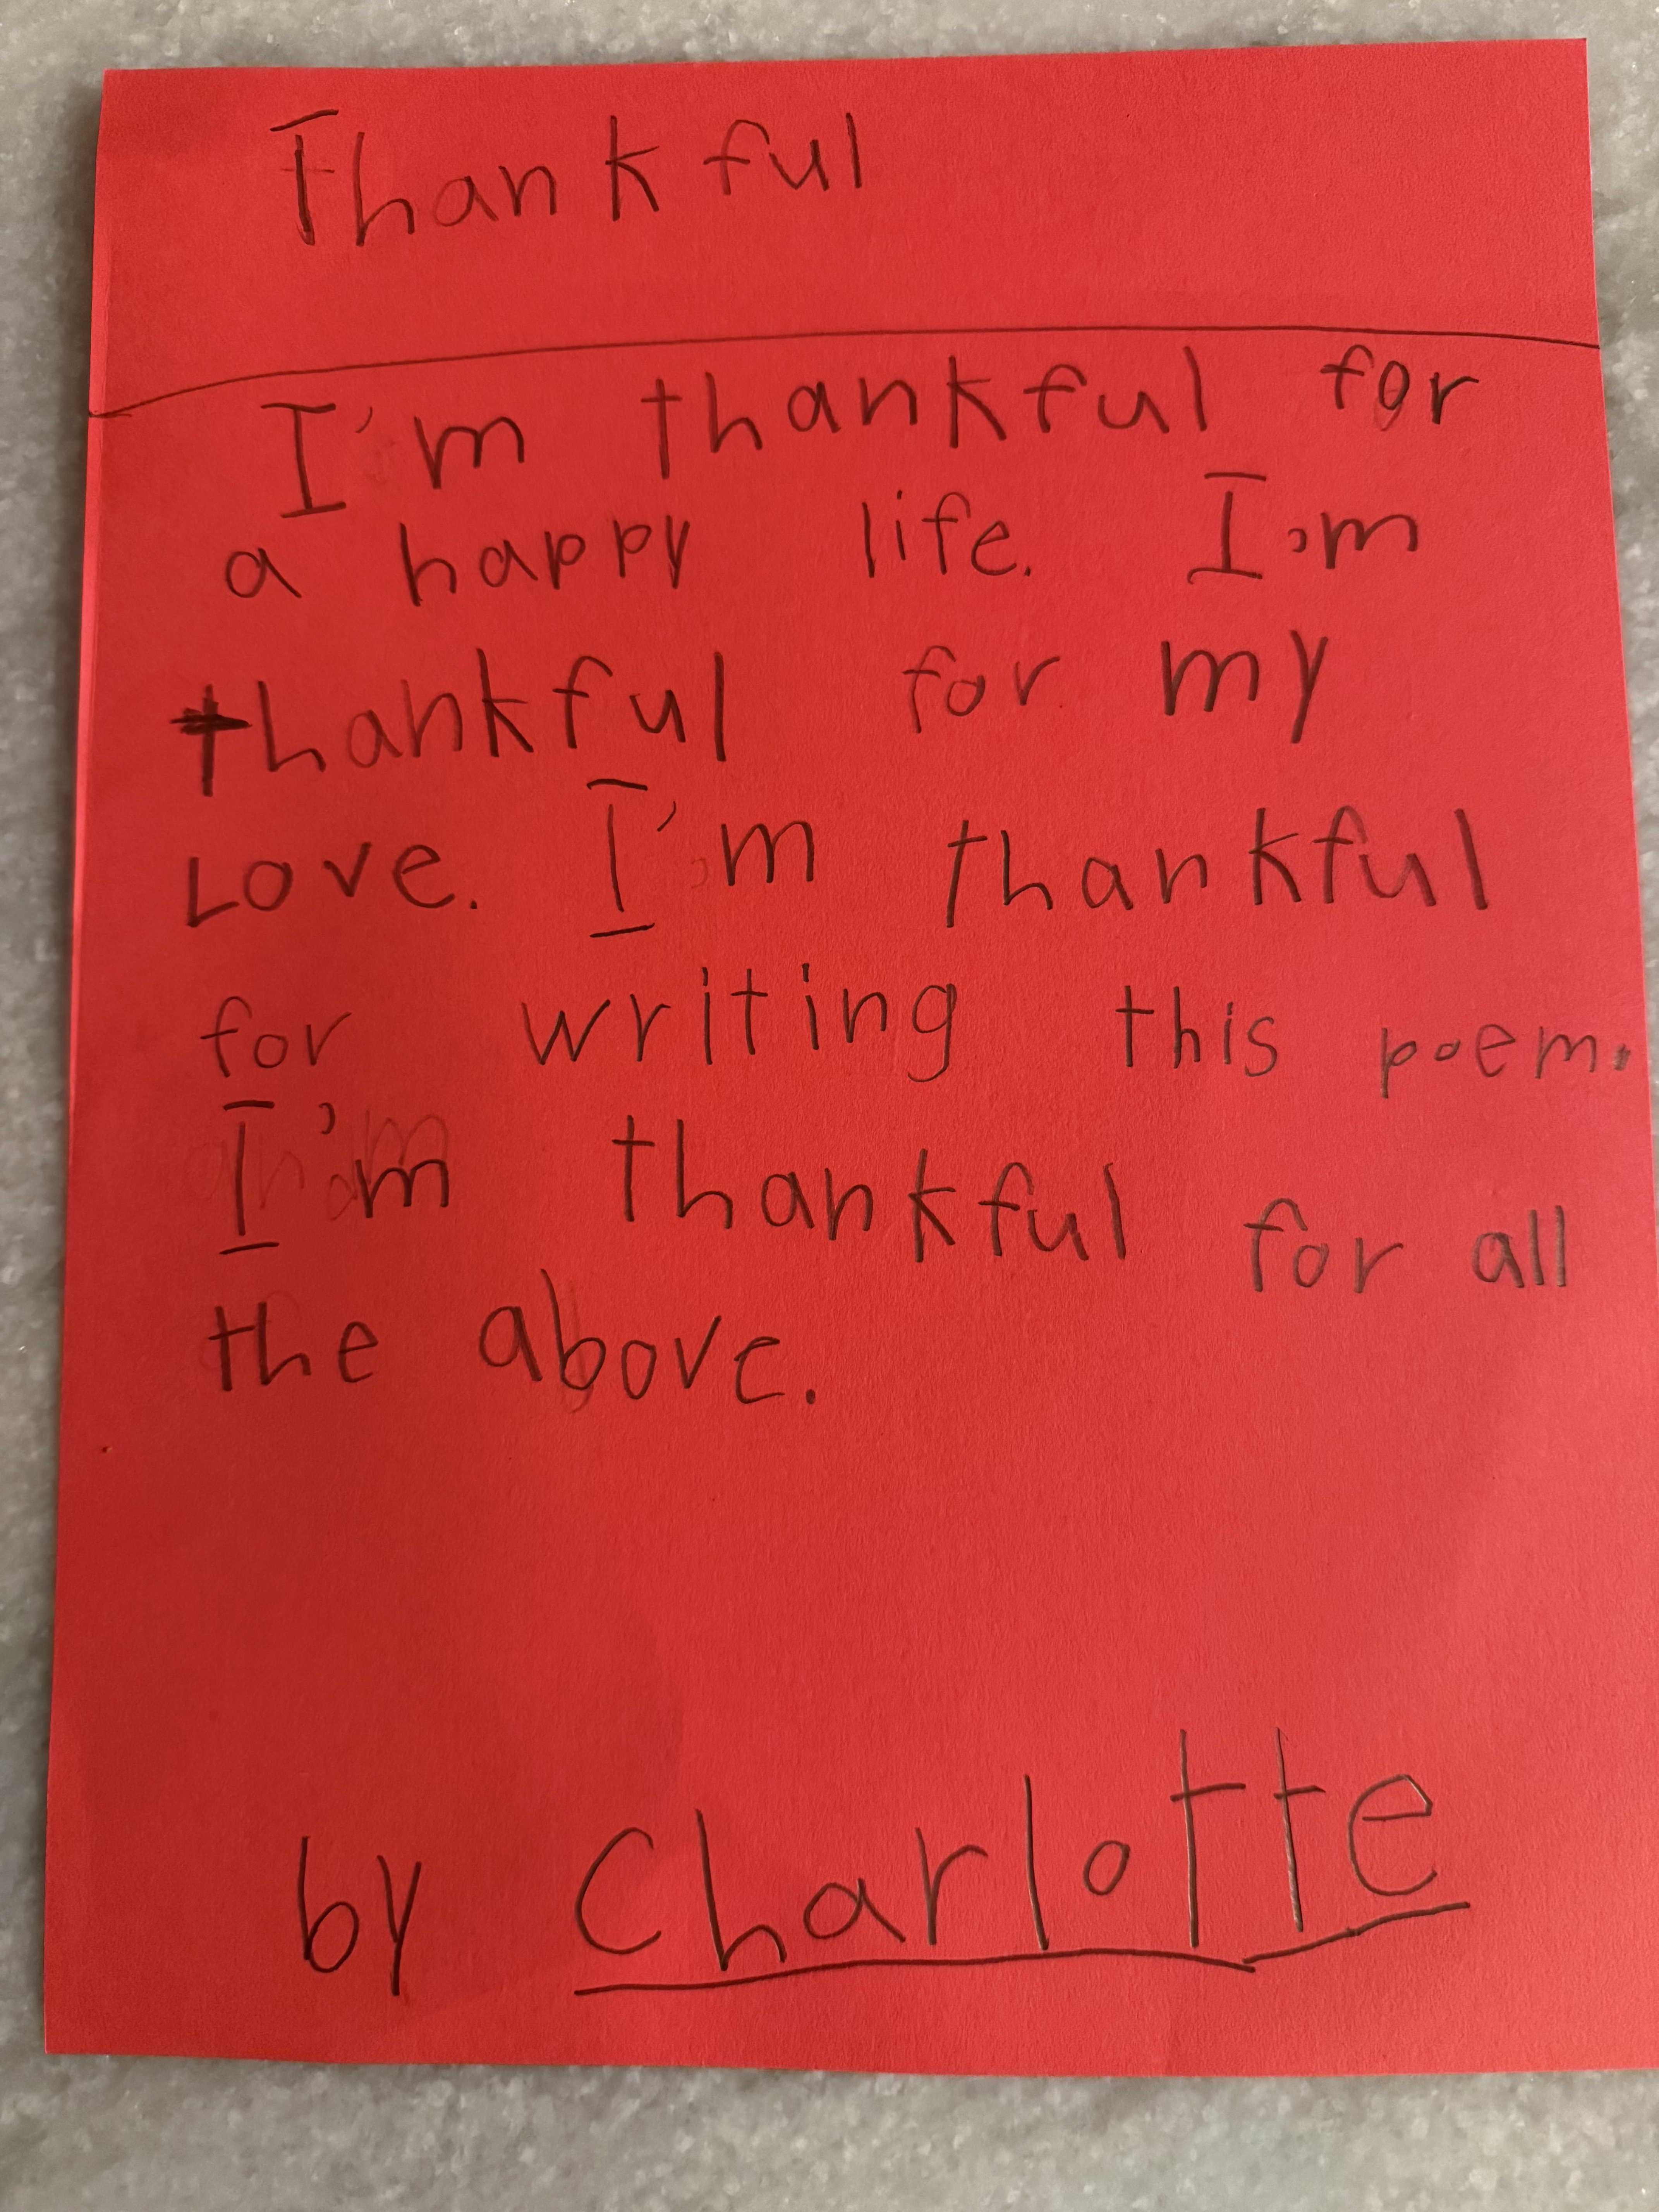 Thankful
I'm thankful for
a happy life. I'm
thankful for my
Love. I'm thankful
for writing this poem.
I'm thankful for all
the above.
by Charlotte